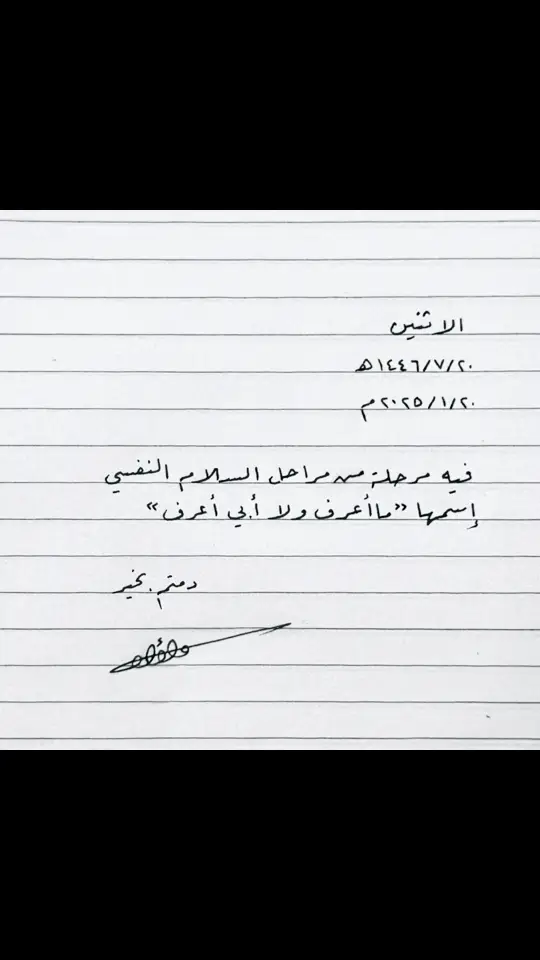 الاثنين
١٤٤٦/٧/٢٠هـ
٢٠٢٥/١/٢٠م
فيه مرحلة من مراحل السلام النفسي
إسمها «ماأعرف ولا أبي أعرف»
دمتم بخير